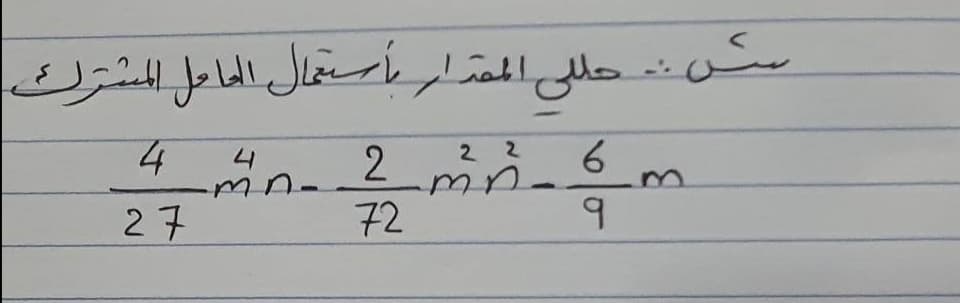 س: حللي المقدار بأستعمال العامل المشترك
4/27 m⁴n - 2/72 m²n² - 6/9 m